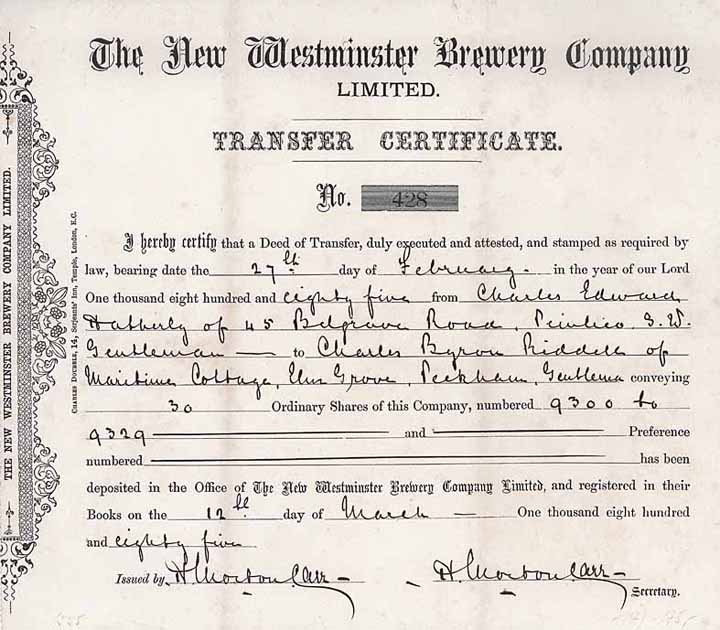 The New Westminster Brewery Company
LIMITED.
TRANSFER CERTIFICATE.
No. 428
I hereby certify that a Deed of Transfer, duly executed and attested, and stamped as required by
law, bearing date the 27th day of February in the year of our Lord
One thousand eight hundred and eighty five from Charles Edward
Hatherly of 45 Belgrave Road, Pimlico S.W.
Gentleman — to Charles Byron Riddell of
Maritime Cottage, Elm Grove, Peckham, Gentleman conveying
30 Ordinary Shares of this Company, numbered 9300 to
9329 and Preference
numbered has been
deposited in the Office of The New Westminster Brewery Company Limited, and registered in their
Books on the 12th day of March — One thousand eight hundred
and eighty five
Issued by H. Morton Carr — H. Morton Carr —
Secretary.
THE NEW WESTMINSTER BREWERY COMPANY LIMITED.
CHARLES DOUBLE, 14, Serjeants' Inn, Temple, London, E.C.